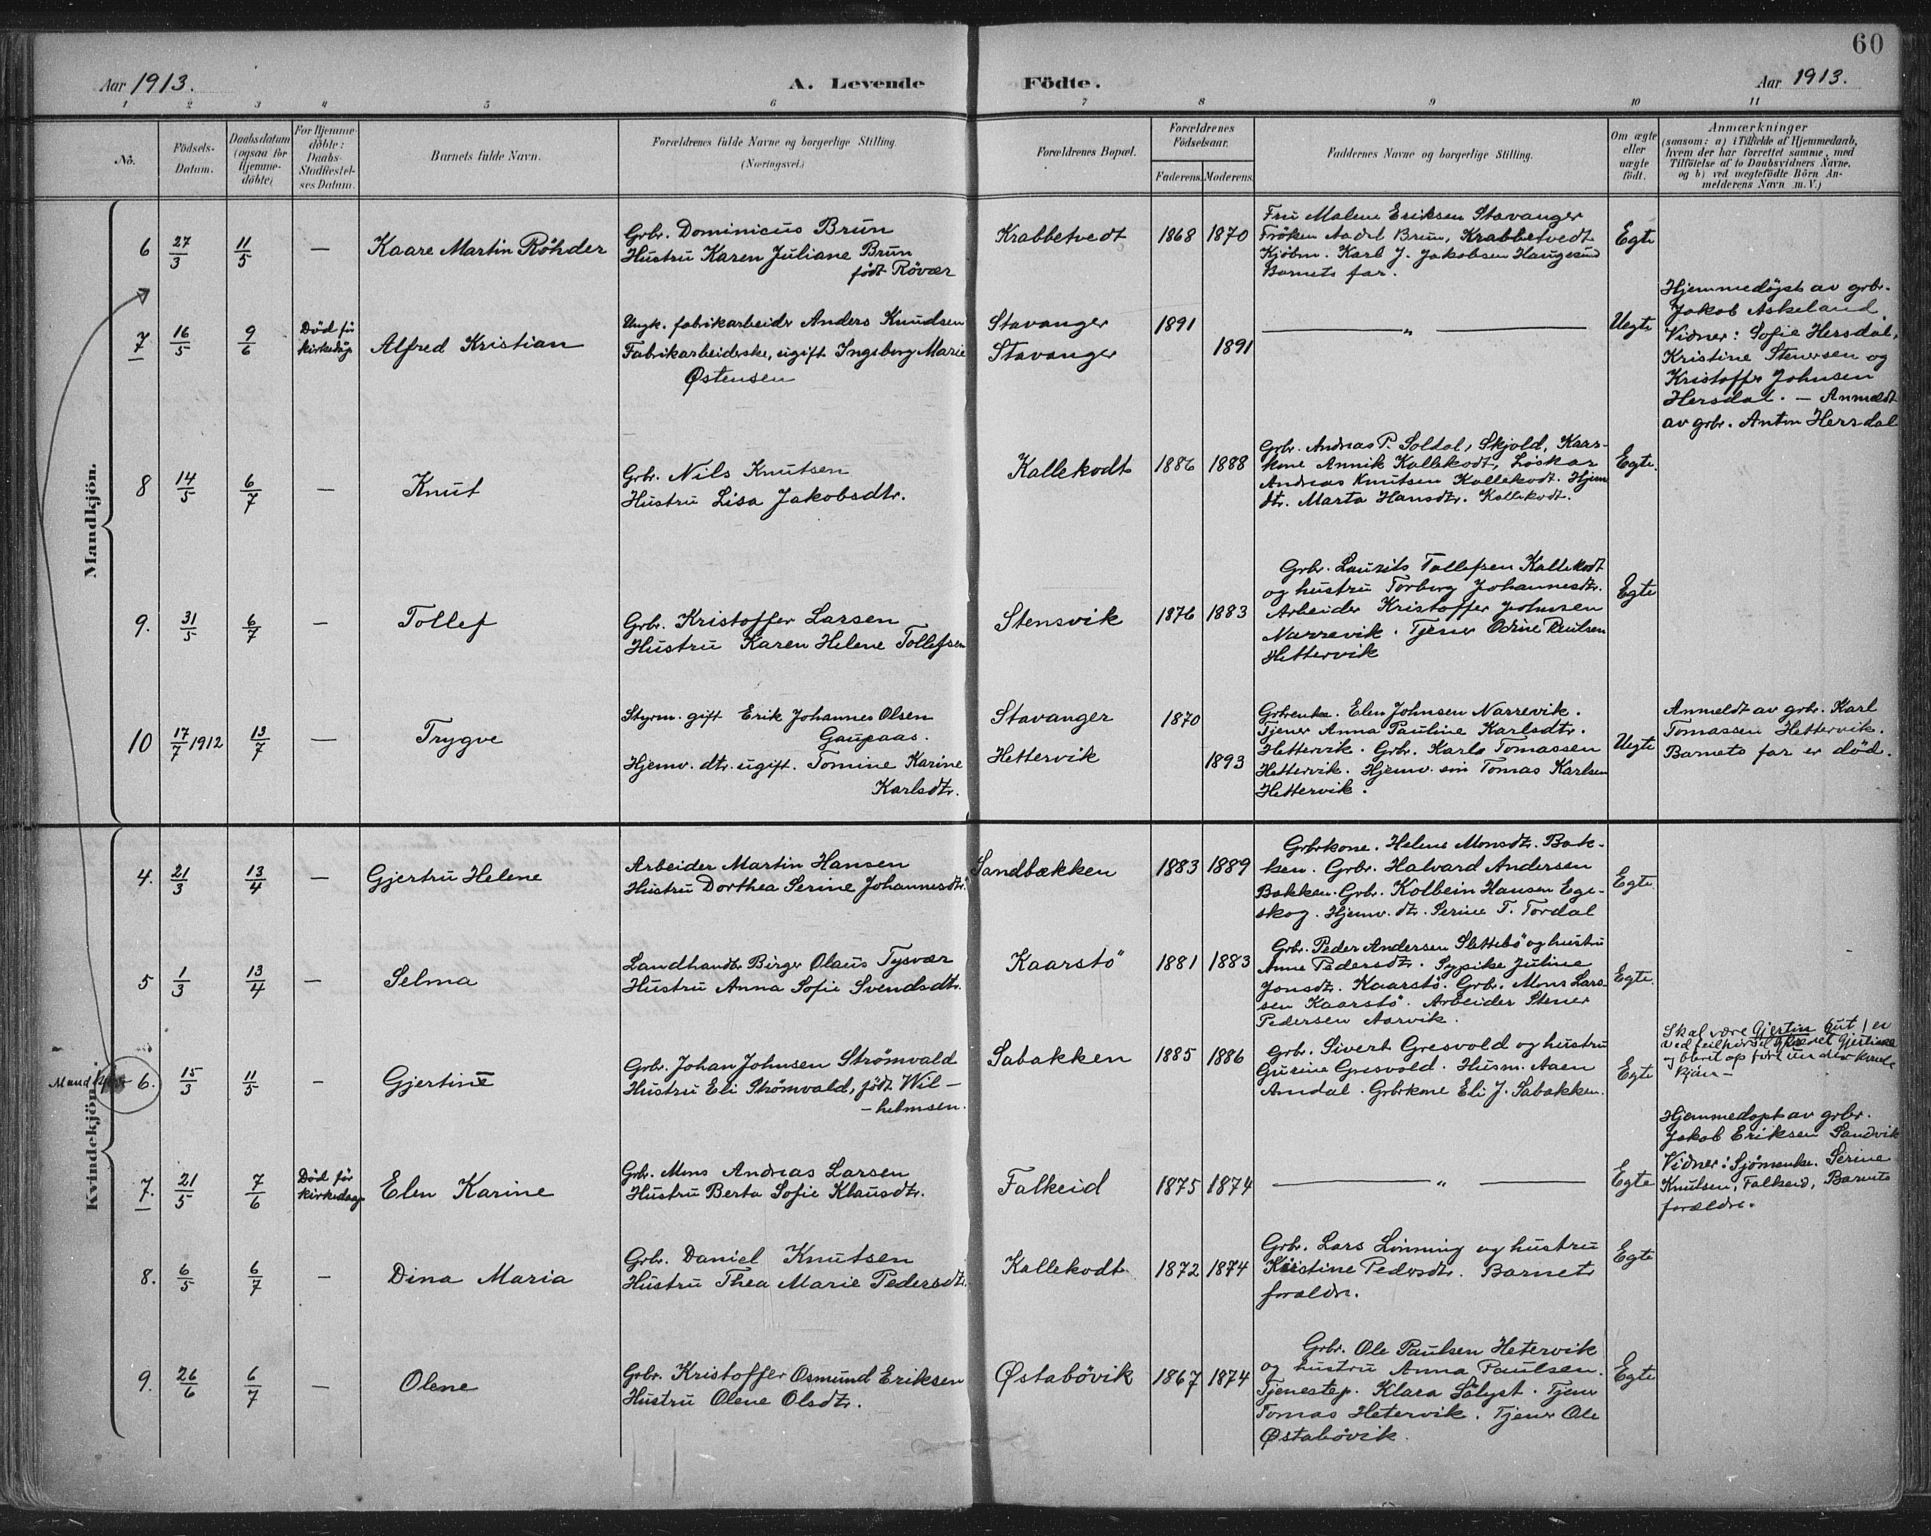 60
Aar 1913.
A. Levende
Födte.
Aar 1913.
1 2 3 4 5 6 7 8 9 10 11
No.
Födsels-
Datum.
Daabsdatum
(ogsaa for
Hjemme-
döbte)
For Hjemme-
döbte:
Daabs-
Stadfæstel-
ses Datum.
Barnets fulde Navn.
Forældrenes fulde Navne og borgerlige Stilling.
(Næringsvei.)
Forældrenes Bopæl.
Forældrenes
Födselsaar.
Faderens. Moderens.
Faddernes Navne og borgerlige Stilling.
Om ægte
eller
uægte
födt.
Anmærkninger
(saasom: a) i Tilfælde af Hjemmedaab,
hvem der har forrettet samme, med
Tilföielse af to Daabsvidners Navne,
og b) ved uægtefödte Börn An-
melderens Navn m. V.)
Mandkjön.
6 27/3 11/5 — Kaare Martin Röhder
Grbr. Dominicus Brun
Hustru Karen Juliane Brun
født Røvær
Krabbetvedt 1868 1870
Fru Malene Eriksen Stavanger
Frøken Aadel Brun, Krabbetvedt
Kjøbm. Karl J. Jakobsen Haugesund
Barnets far.
Egte
7 16/5 9/6
Død før
kirkedåp
Alfred Kristian
Ungk. fabrikarbeider Anders Knudsen
Fabrikarbeiderske, ugift Ingeborg Marie
Østensen
Stavanger 1891
Stavanger 1891
— „ —
Uegte
Hjemmedøpt av grbr.
Jakob Askeland.
Vidner: Sofie Hersdal,
Kristine Stenersen og
Kristoffer Johnsen
Hersdal. — Anmeldt
av grbr. Anton Hersdal
8 14/5 6/7 — Knut
Grbr. Nils Knutsen
Hustru Lisa Jakobsdtr.
Kallekodt 1886 1888
Grbr. Andreas P. Soldal, Skjold, Kaar-
kone Annik Kallekodt, Løskar
Andreas Knutsen Kallekodt. Hjem
dtr. Marta Hansdtr. Kallekodt.
Egte.
9. 31/5 6/7 — Tollef
Grbr. Kristoffer Larsen
Hustru Karen Helene Tollefsen
Stensvik 1876 1883
Grbr. Laurits Tollefsen Kallekodt
og hustru Torborg Johannesdtr.
Arbeider Kristoffer Johnsen
Narrevik. Tjener Odine Paulsen
Hettervik
Egte
10 17/7 1912 13/7 — Trygve
Styrm. gift Erik Johannes Olsen
Gaupaas.
Hjemv. dtr. ugift. Tomine Karine
Karlsdtr.
Stavanger 1870
Hettervik 1893
Grbrenke. Elen Johnsen Narrevik.
Tjener Anna Pauline Karlsdtr.
Hettervik. Grbr. Karl Tomassen
Hettervik. Hjemv. søn Tomas Karlsen
Hettervik.
Uegte
Anmeldt av grbr. Karl
Tomassen Hettervik.
Barnets far er død.
Kvindekjön.
4. 21/3 13/4 — Gjertru Helene
Arbeider Martin Hansen
Hustru Dorthea Serine Johannesdtr.
Sandbækken 1883 1889
Grbrkone. Helene Monsdtr. Bak-
ken. Grbr. Halvard Andersen
Bakken. Grbr. Kolbein Hansen Ege-
skog. Hjemv. dtr. Serine T. Tordal
Egte
5 1/3 13/4 — Selma
Landhandlr. Birger Olaus Tysvær
Hustru Anna Sofie Svendsdtr.
Kaarstö 1881 1883
Grbr. Peder Andersen Slettebö og hustru
Anne Pedersdtr. Sypike Juline
Jonsdtr. Kaarstö. Grbr. Mons Lars-
sen Kaarstö. Arbeider Stener
Pedersen Aarvik.
Egte.
Mand 6. 15/3 11/5 — Gjertine
Grbr. Johan Johnsen Strømvald
Hustru Eli Strømvald, født Wil-
-helmsen.
Sabakken 1885 1886
Grbr. Sivert Gresvold og hustru
Gurine Gresvold. Husm. Aaen
Amdal. Grbrkone Eli J. Sabakken.
Egte
Skal være Gjertin Gut / er
ved feilhørsel
og blevet op ført under kvinde
kjøn —
7. 21/5 7/6
Død før
kirkedaap
Elen Karine
Grbr. Mons Andreas Larsen
Hustru Berta Sofie Klausdtr.
Falkeid 1875 1874
— „ —
Egte
Hjemmedøpt av grbr.
Jakob Eriksen Sandvik
Vidner: Sjömenke. Serine
Knutsen, Falkeid, Barnets
forældre.
8. 6/5 6/7 — Dina Maria
Grbr. Daniel Knutsen
Hustru Thea Marie Pedersdtr.
Kallekodt 1872 1874
Grbr. Lars Lönning og hustru
Kristine Pedersdtr. Barnets
forældre.
Egte
9. 26/6 6/7 — Olene
Grbr. Kristoffer Osmund Eriksen
Hustru Olene Olsdtr.
Østabövik 1867 1874
Grbr. Ole Paulsen Hetervik
og hustru Anna Paulsen.
Tjenestep. Klara Sölyst. Tjener
Tomas Hetervik. Tjener Ole
Østabövik.
Egte